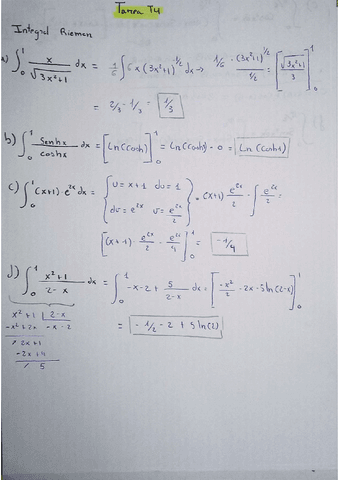 Tarea T4
Integral Rieman
a) ∫₀¹ x/√(3x²+1) dx = 1/6 ∫ 6x(3x²+1)^(-1/2) dx → 1/6 · (3x²+1)^(1/2)/(1/2) = [√(3x²+1)/3]₀¹
= 2/3 - 1/3 = 1/3
b) ∫₀¹ senhx/coshx dx = [Ln(Cosh)]₀¹ = Ln(Cosh1) - 0 = Ln(Cosh1)
c) ∫₀¹ (x+1)·e^(2x) dx = { u = x+1 du = 1
dv = e^(2x) v = e^(2x)/2 } = (x+1) e^(2x)/2 - ∫ e^(2x)/2 =
[(x+1)· e^(2x)/2 - e^(2x)/4]₀¹ = -1/4
d) ∫₀¹ x²+1/2-x dx = ∫₀¹ -x-2 + 5/2-x dx = [-x²/2 - 2x - 5ln(2-x)]₀¹
x²+1 | 2-x
-x²+2x -x-2
/ 2x+1
-2x+4
/ 5
= -1/2 - 2 + 5ln(2)